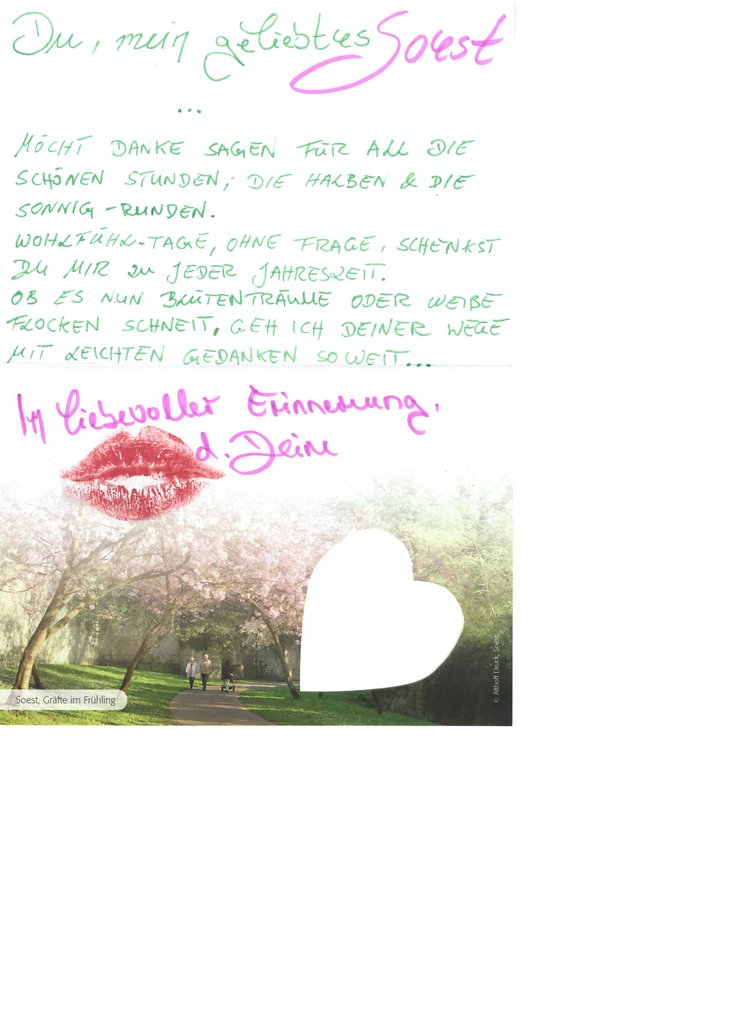 Du, mein geliebtes Soest
...
MÖCHT DANKE SAGEN FÜR ALL DIE
SCHÖNEN STUNDEN, DIE HALBEN & DIE
SONNIG-RUNDEN.
WOHLFÜHL-TAGE, OHNE FRAGE, SCHENKST
DU MIR ZU JEDER JAHRESZEIT.
OB ES NUN BLÜTENTRÄUME ODER WEIßE
FLOCKEN SCHNEIT, GEH ICH DEINER WEGE
MIT LEICHTEN GEDANKEN SO WEIT...
In liebevoller Erinnerung,
d. Deine
Soest, Gräfte im Frühling
© Althoff Druck, Soest